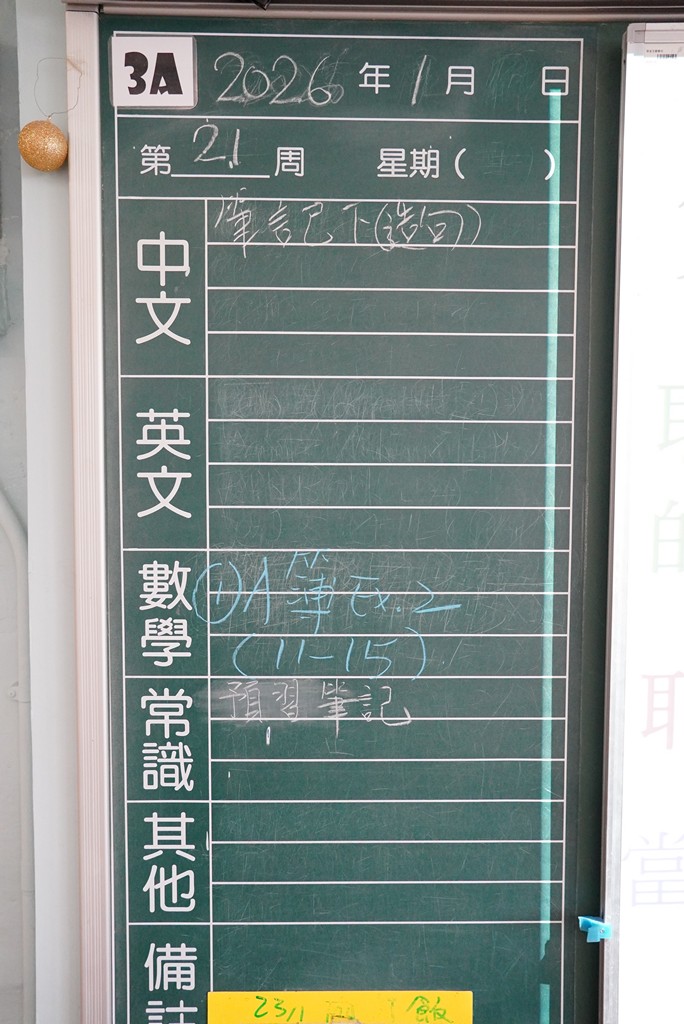 3A 2026年1月 日
第21周 星期( )
中文 筆記巳下(造句)
英文
數學 ①A簿 Ex.2
(11-15)
常識 預習筆記
其他
備註
23/1 飯